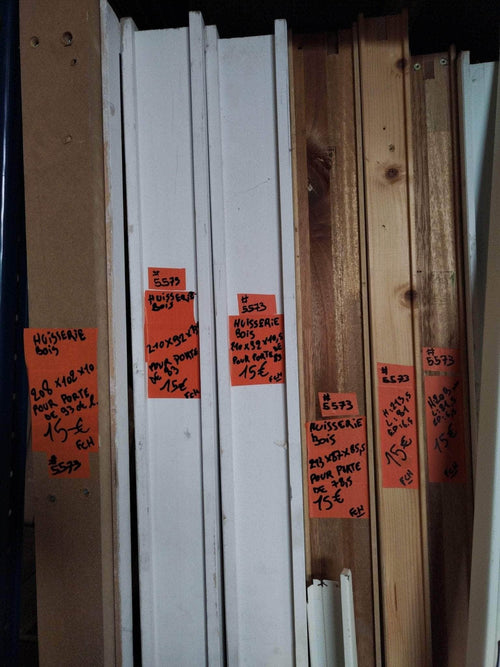 HUISSERIE
Bois
208 x 102 x 10
POUR PORTE
DE 93 de l.
15€
FCH
#
5573
#
5573
HUISSERIE
Bois
210 x 92 x
POUR PORTE
DE 83
15€
FCH
#
5573
HUISSERIE
Bois
210 x 92 x 10,5
POUR PORTE DE
83
15€
FCH
#
5573
HUISSERIE
Bois
213 x 87 x 85,5
POUR PORTE
DE 78,5
15€
FCH
#
5573
15€
FCH
#
5573
15€
FCH